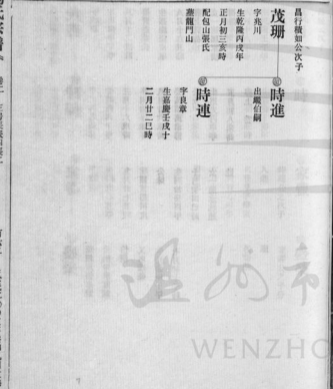 昌行積如公次子
茂珊
字兆川
生乾隆丙戌年
正月初三亥時
配包山張氏
葬龍門山
時進
出繼伯嗣
時連
字良章
生嘉慶壬戌十
二月廿二巳時
溫州市
WENZHO